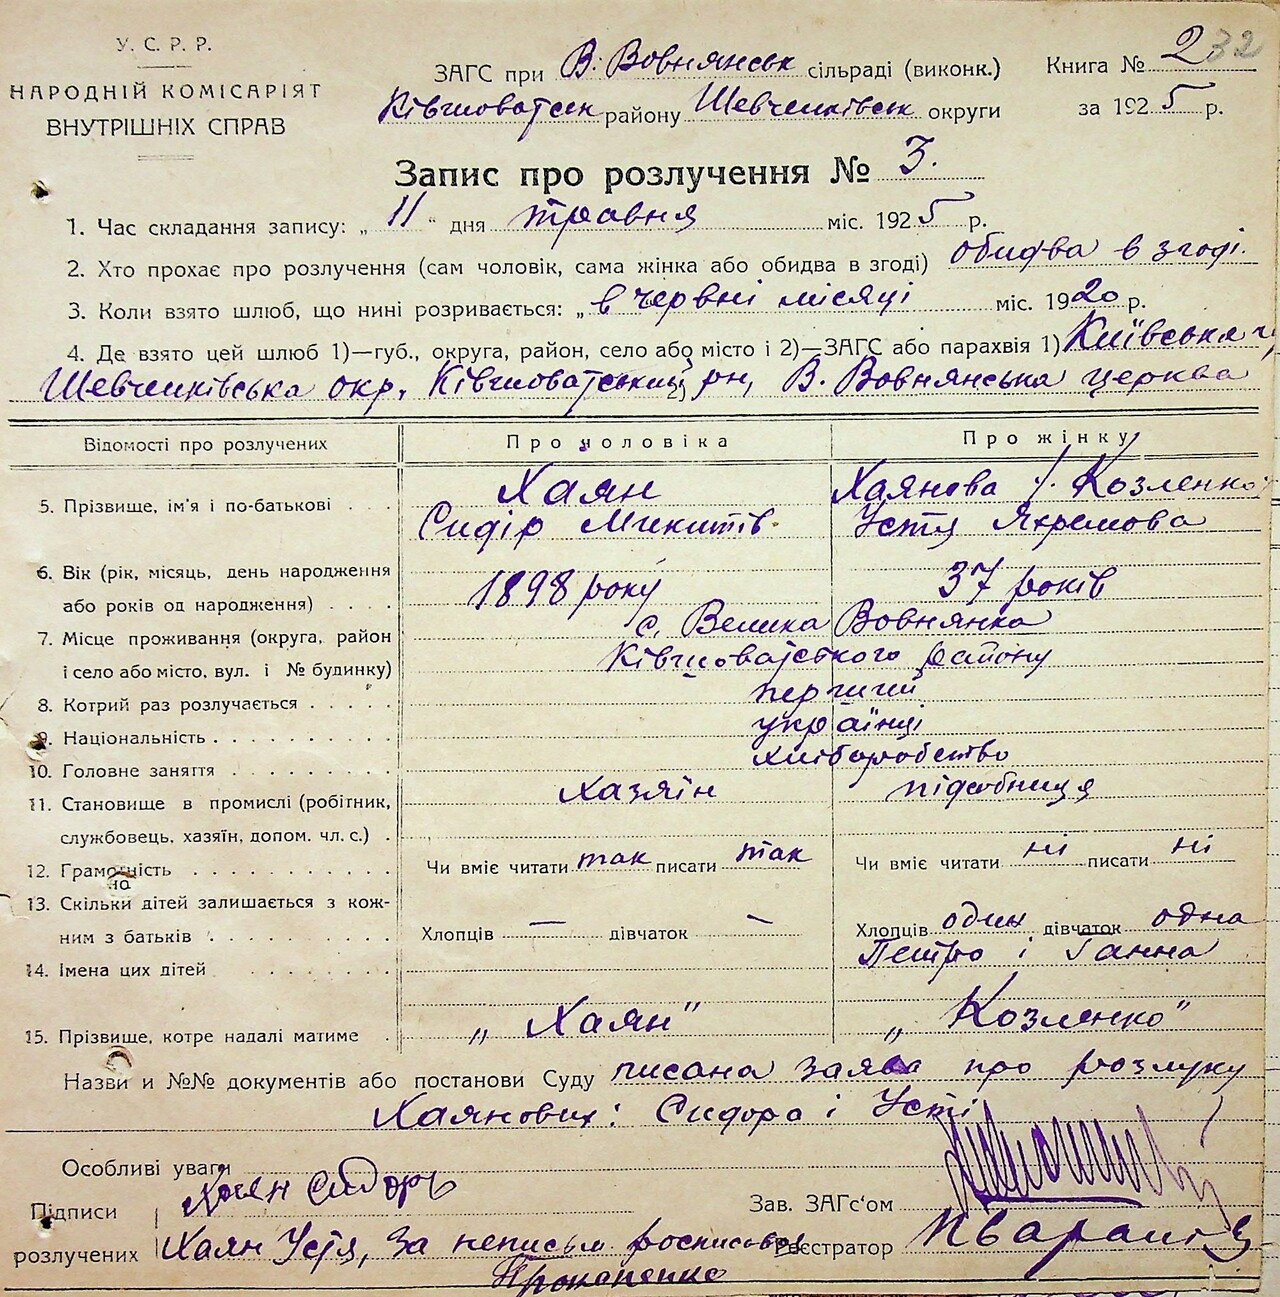 У. С. Р. Р.
НАРОДНІЙ КОМІСАРІЯТ
ВНУТРІШНІХ СПРАВ
ЗАГС при В. Вовнянськ сільраді (виконк.)
Ківшоватськ району Шевченківськ округи
Книга № 2 32
за 1925 р.
Запис про розлучення № 3.
1. Час складання запису: „ 11 “ дня травня міс. 1925 р.
2. Хто прохає про розлучення (сам чоловік, сама жінка або обидва в згоді) обидва в згоді.
3. Коли взято шлюб, що нині розривається: „ в червні місяці міс. 1920 р.
4. Де взято цей шлюб 1)—губ., округа, район, село або місто і 2)—ЗАГС або парахвія 1) Київська
Шевченківська окр. Ківшоватський рн, В. Вовнянська церква
Відомості про розлучених Про чоловіка Про жінку
5. Прізвище, ім'я і по-батькові . . . Хаян Хаянова Козленко
Сидір Микитів. Устя Яхремова
6. Вік (рік, місяць, день народження 1898 року 37 років
або років од народження) . . . .
7. Місце проживання (округа, район с. Велика Вовнянка
і село або місто, вул. і № будинку) Ківшоватського району
8. Котрий раз розлучається . . . . . перший
9. Національність . . . . . . . . . . українці
10. Головне заняття . . . . . . . . . хліборобство
11. Становище в промислі (робітник, Хазяїн підсобниця
службовець, хазяїн, допом. чл. с.) .
12. Грамотність . . . . . . . . . . . Чи вміє читати так писати так Чи вміє читати ні писати ні
на
13. Скільки дітей залишається з кож-
ним з батьків . . . . . . . . . . Хлопців — дівчаток — Хлопців один дівчаток одна
14. Імена цих дітей . . . . . . . . Петро і Ганна
15. Прізвище, котре надалі матиме . „ Хаян" „ Козленко"
Назви и №№ документів або постанови Суду писана заява про розлуку
Хаянових: Сидора і Усті
Особливі уваги
Підписи Хаян Сидоръ Зав. ЗАГс‘ом
розлучених Хаян Устя, за неписьм росписовся Реєстратор
Прокопенко